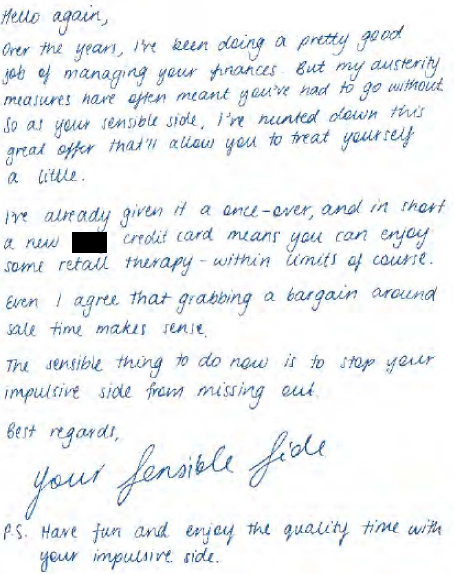 Hello again,
Over the years, I've been doing a pretty good
job of managing your finances. But my austerity
measures have often meant you've had to go without.
So as your sensible side, I've hunted down this
great offer that'll allow you to treat yourself
a little.
I've already given it a once-over, and in short
a new credit card means you can enjoy
some retail therapy - within limits of course.
Even I agree that grabbing a bargain around
sale time makes sense.
The sensible thing to do now is to stop your
impulsive side from missing out.
Best regards,
your Sensible Side
P.S. Have fun and enjoy the quality time with
your impulsive side.